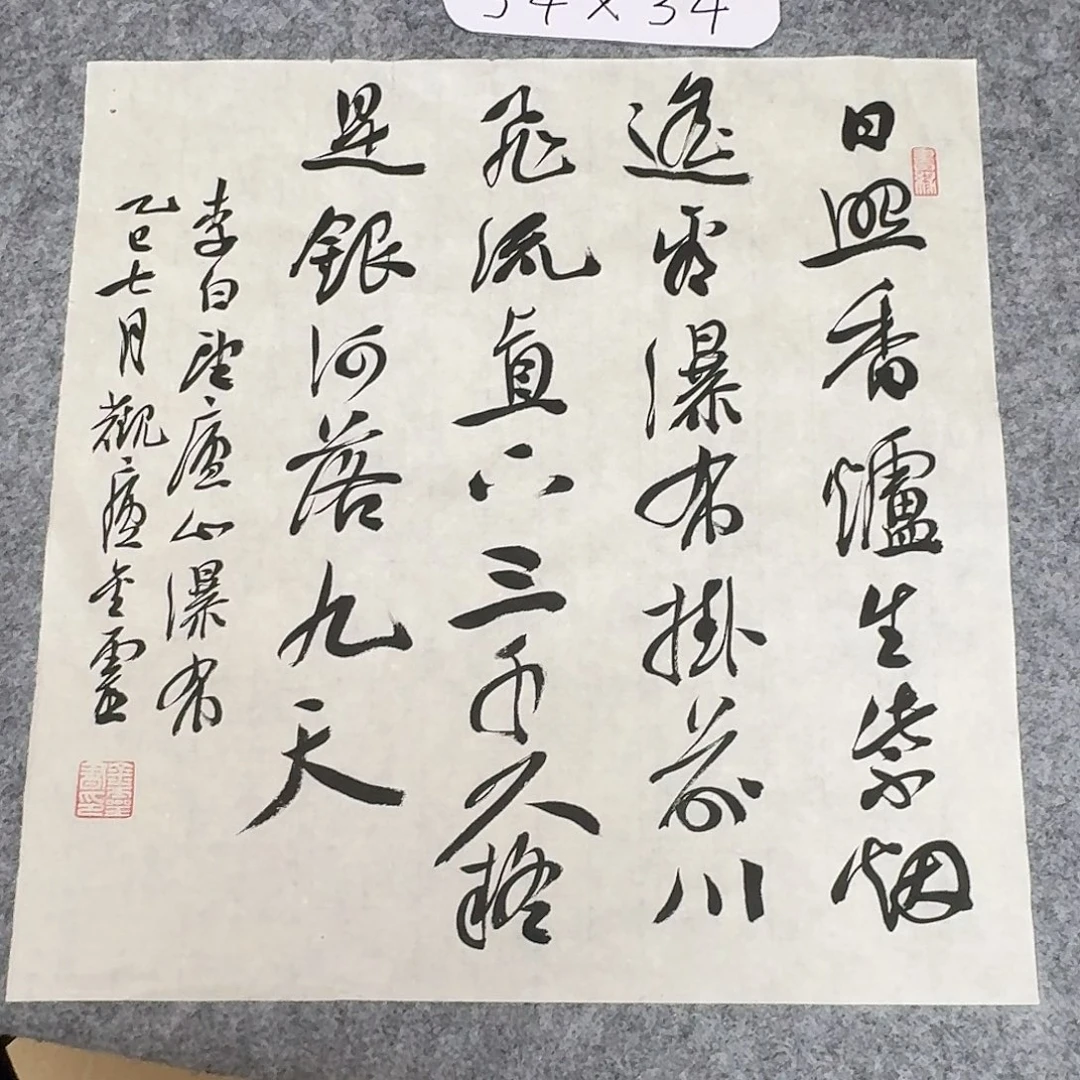 日照香爐生紫烟
遙看瀑布掛前川
飛流直下三千尺疑
是銀河落九天
李白望廬山瀑布
乙巳七月觀廬